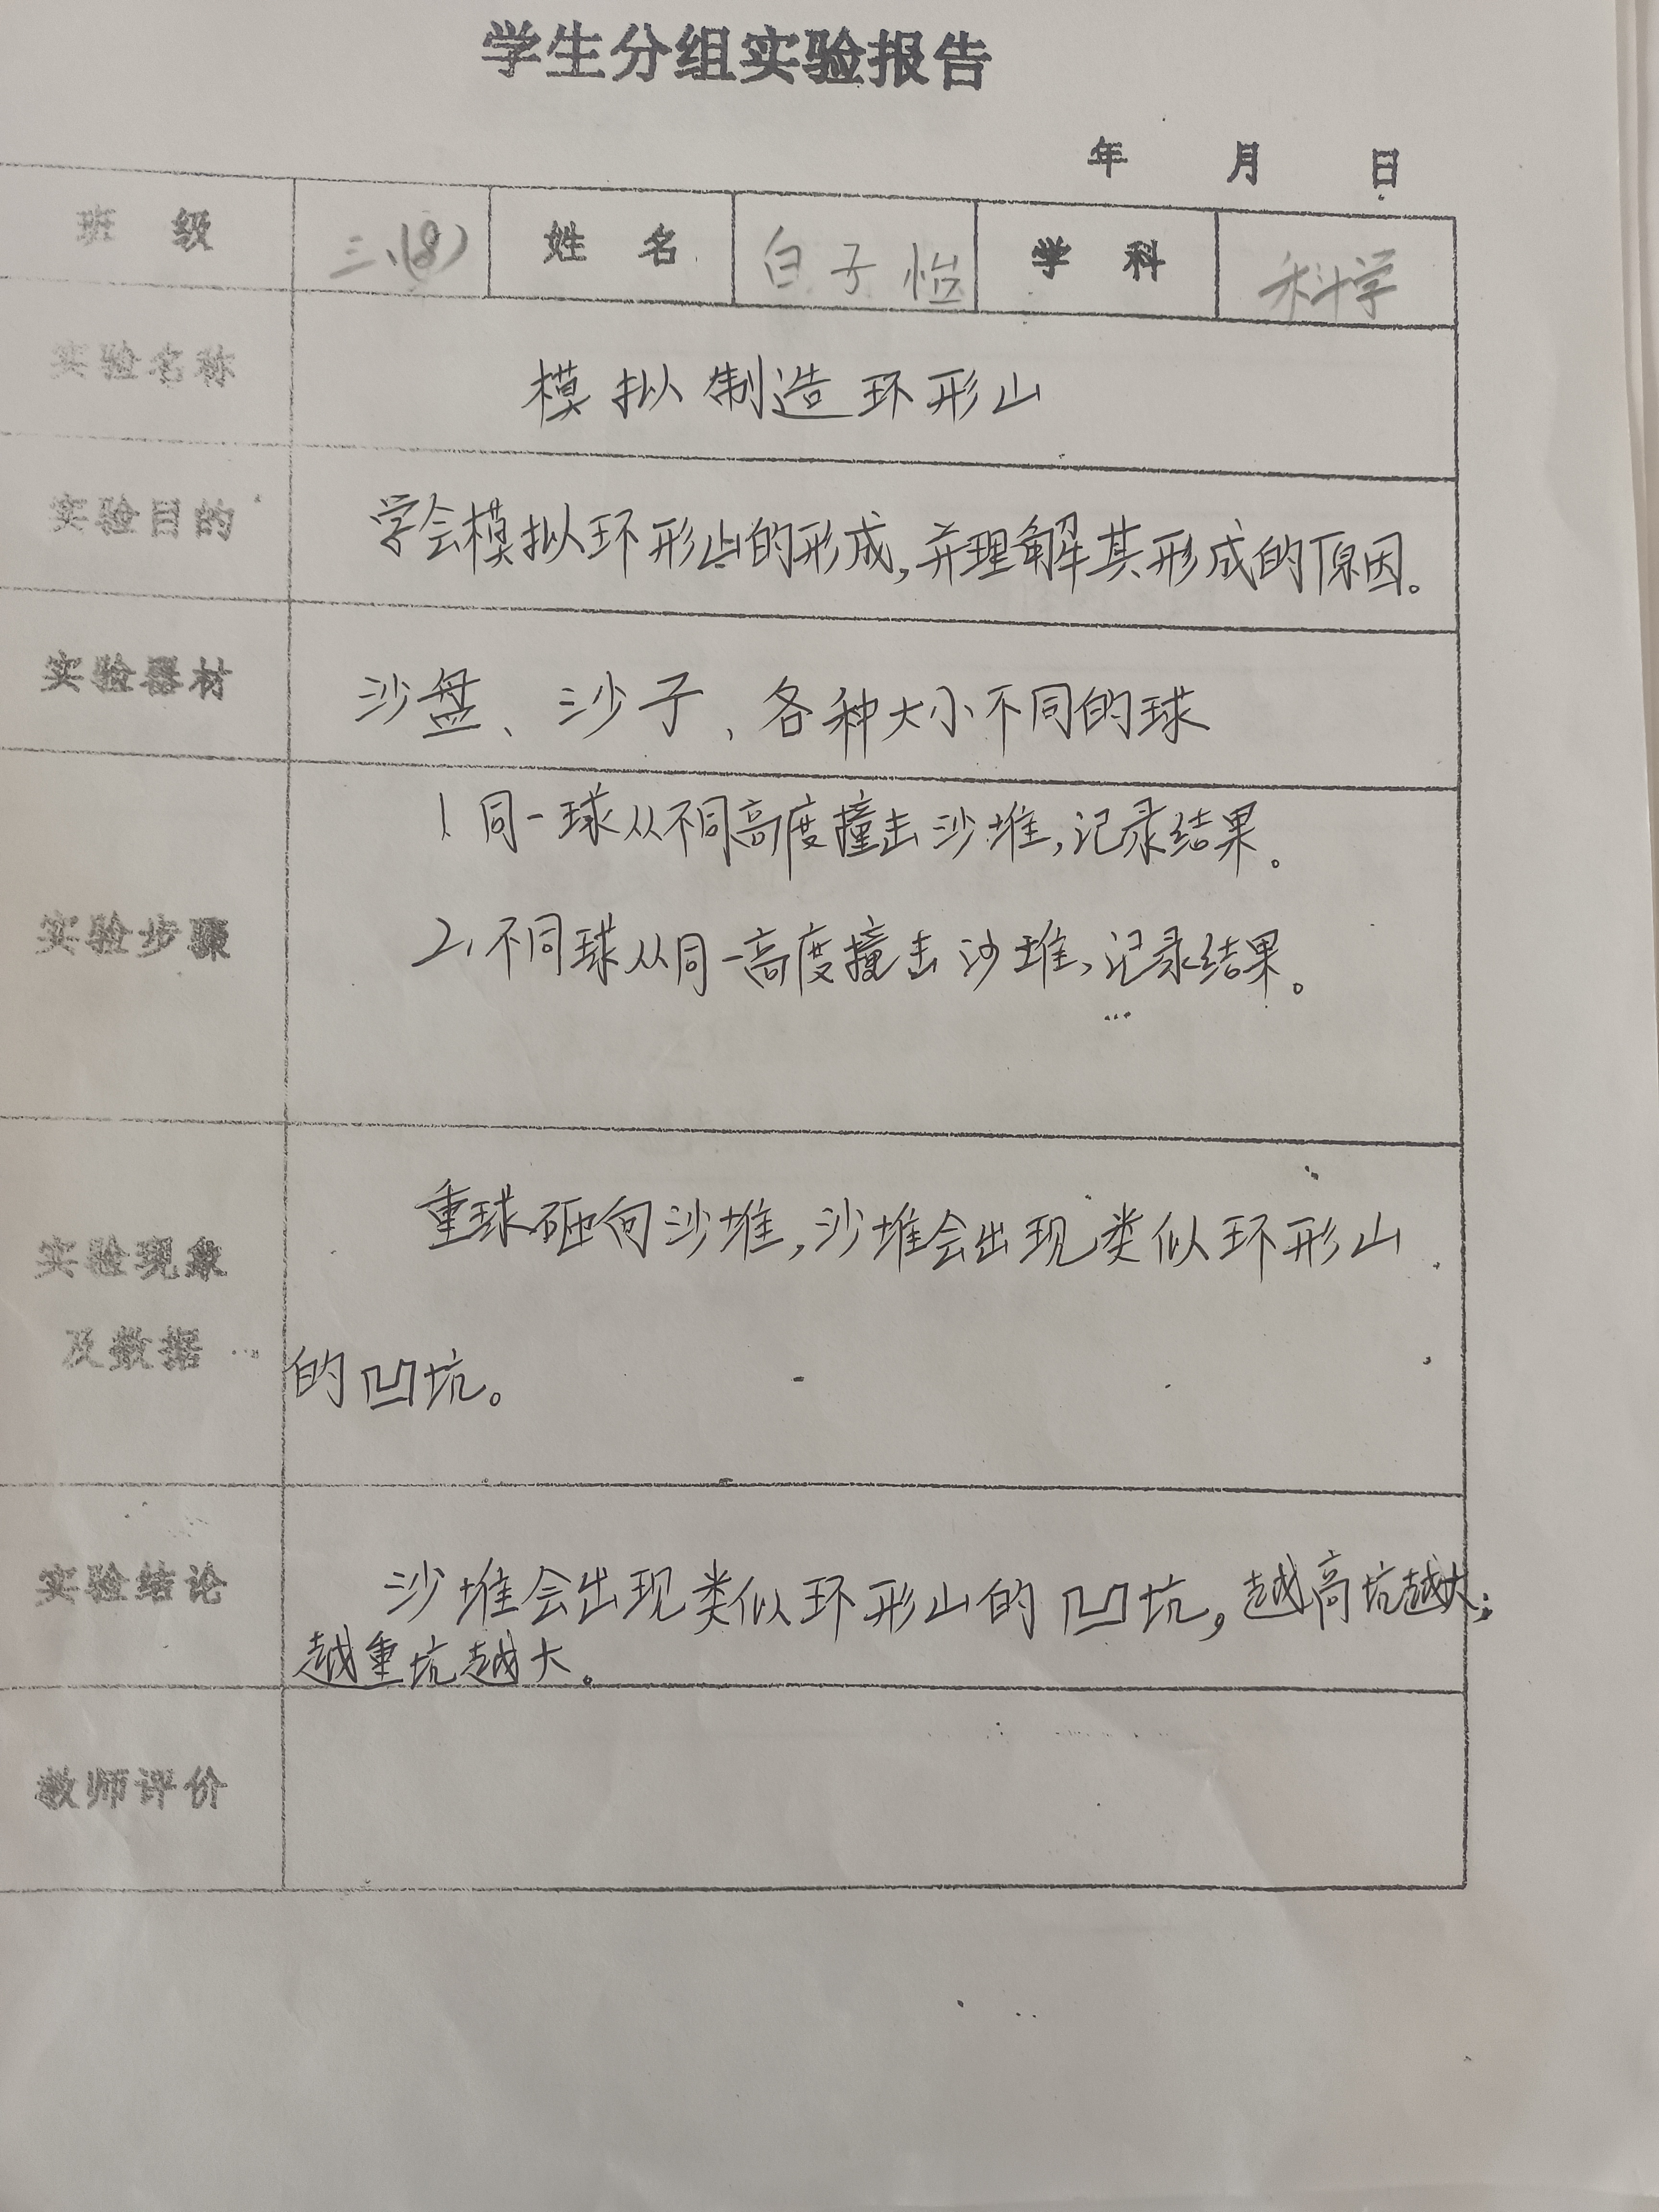 学生分组实验报告
年 月 日
班 级 三、(8) 姓 名 白子怡 学 科 科学
实验名称 模拟制造环形山
实验目的 学会模拟环形山的形成,并理解其形成的原因。
实验器材 沙盘、沙子、各种大小不同的球
1 同一球从不同高度撞击沙堆,记录结果。
实验步骤 2、不同球从同一高度撞击沙堆,记录结果。
重球砸向沙堆,沙堆会出现类似环形山
实验现象
及数据 的凹坑。
实验结论 沙堆会出现类似环形山的凹坑,越高坑越大;
越重坑越大。
教师评价